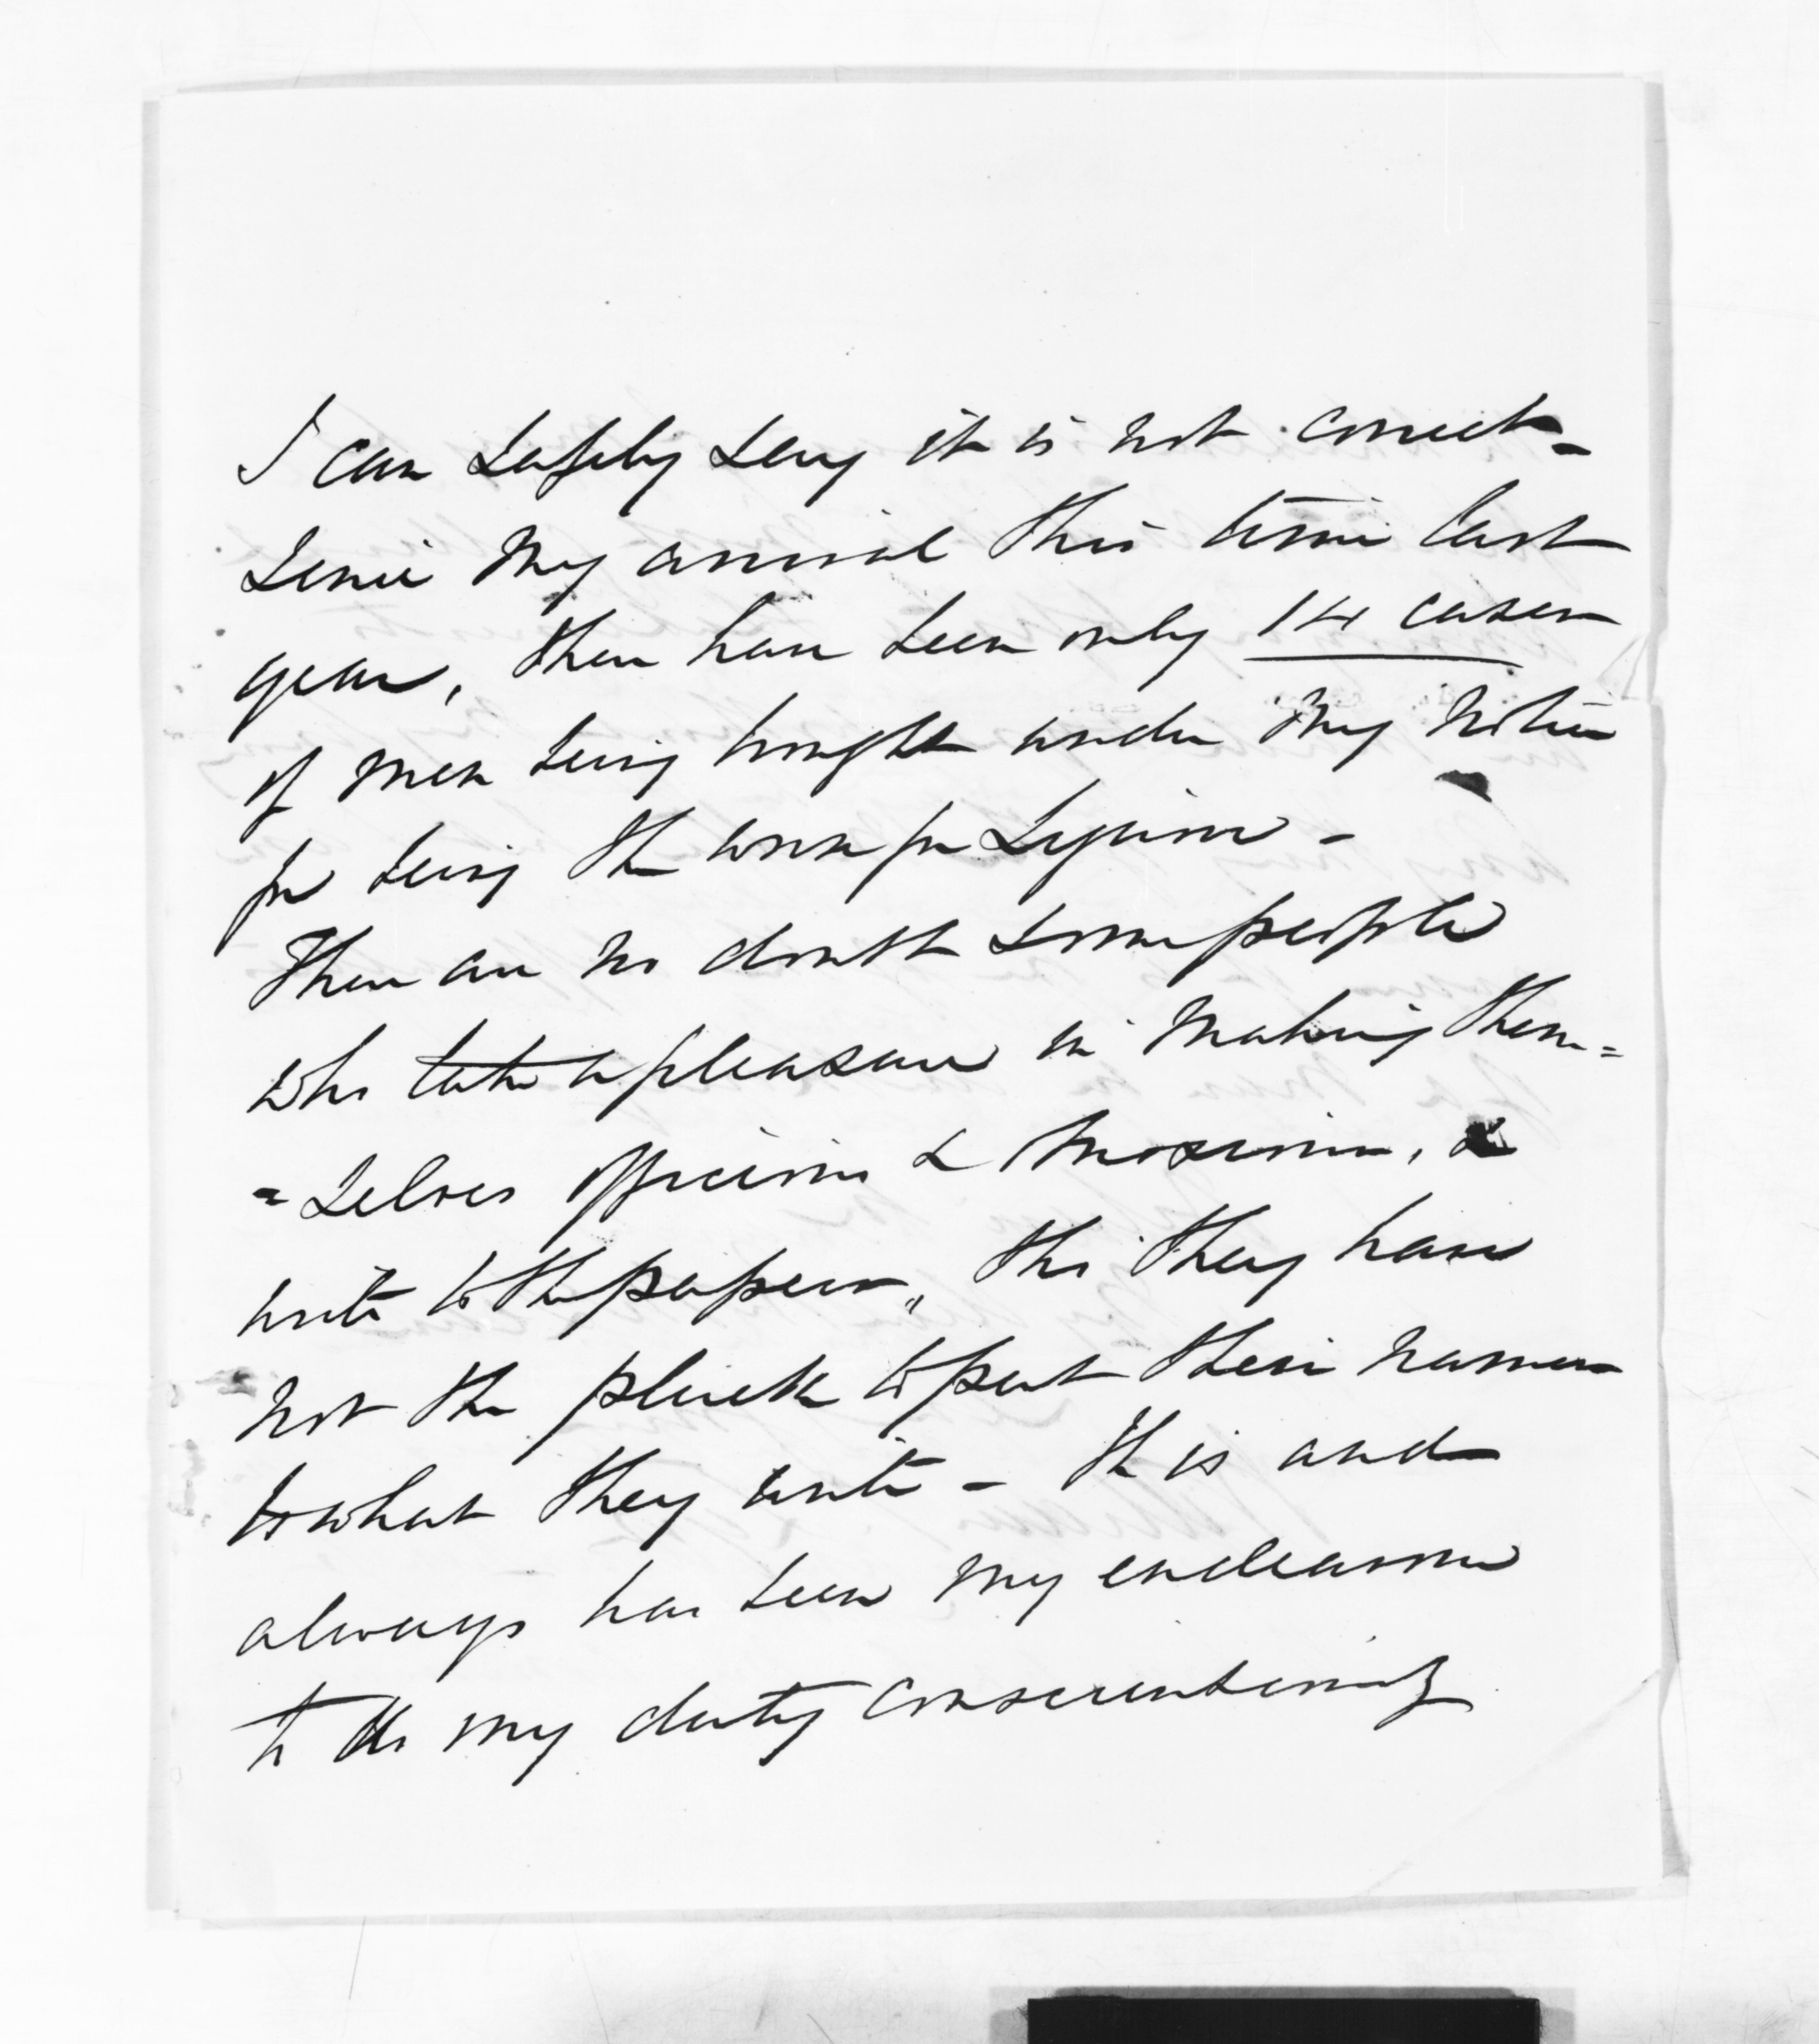 I can safely say it is not correct -
Since my arrival this time last
year, there have been only 14 cases
of men being brought under my notice
for being the worse for Liquor -
There are no doubt some people
who take a pleasure in making them=
=selves officious &
write to the papers, tho they have
not the pluck to put their names
to what they write - It is and
always has been my endeavour
to do my duty conscientiously